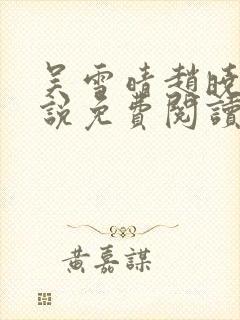 吴雪晴赵晓
說免費閱讀
黃嘉謀